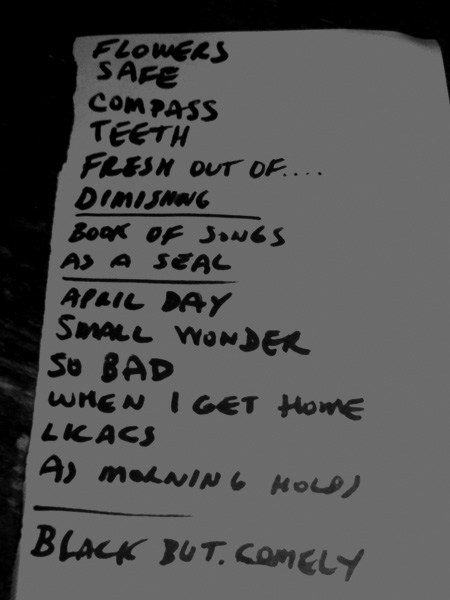 FLOWERS
SAFE
COMPASS
TEETH
FRESH OUT OF....
DIMISHING
BOOK OF SONGS
AS A SEAL
APRIL DAY
SMALL WONDER
SO BAD
WHEN I GET HOME
LILACS
AS MORNING HOLDS
BLACK BUT. COMELY